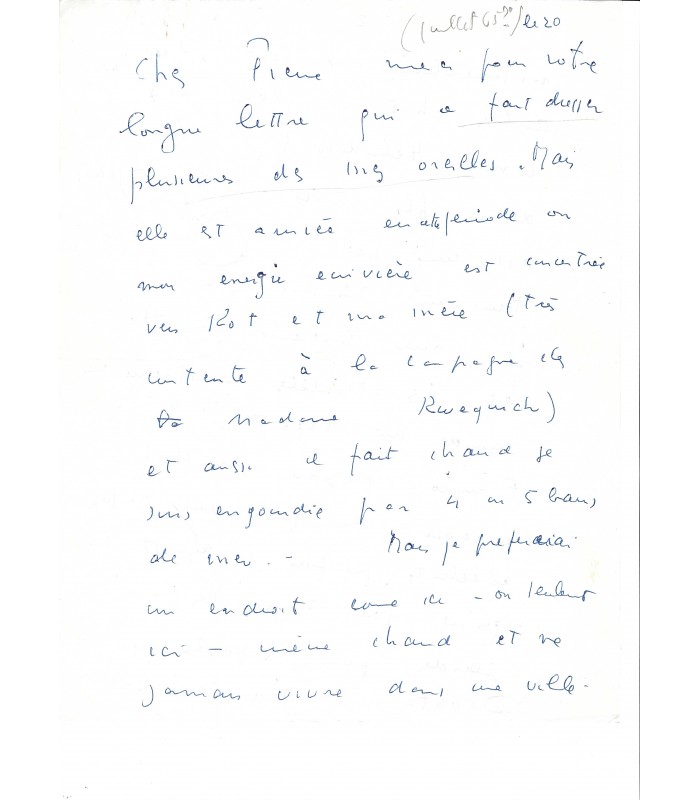 (Juillet 65 ?)/ le 20
Cher Pierre merci pour votre
longue lettre qui a fait dresser
plusieures de mes oreilles. Mais
elle est arrivée en cette période où
mon energie ecrivière est concentrée
vers Kot et ma mère (très
contente à la campagne chez
Madame
et aussi il fait chaud je
suis engourdie par 4 ou 5 bains
de mer. - Mais je prefererai
un endroit come ici - ou seulement
ici - même chaud et ne
jamais vivre dans une ville -